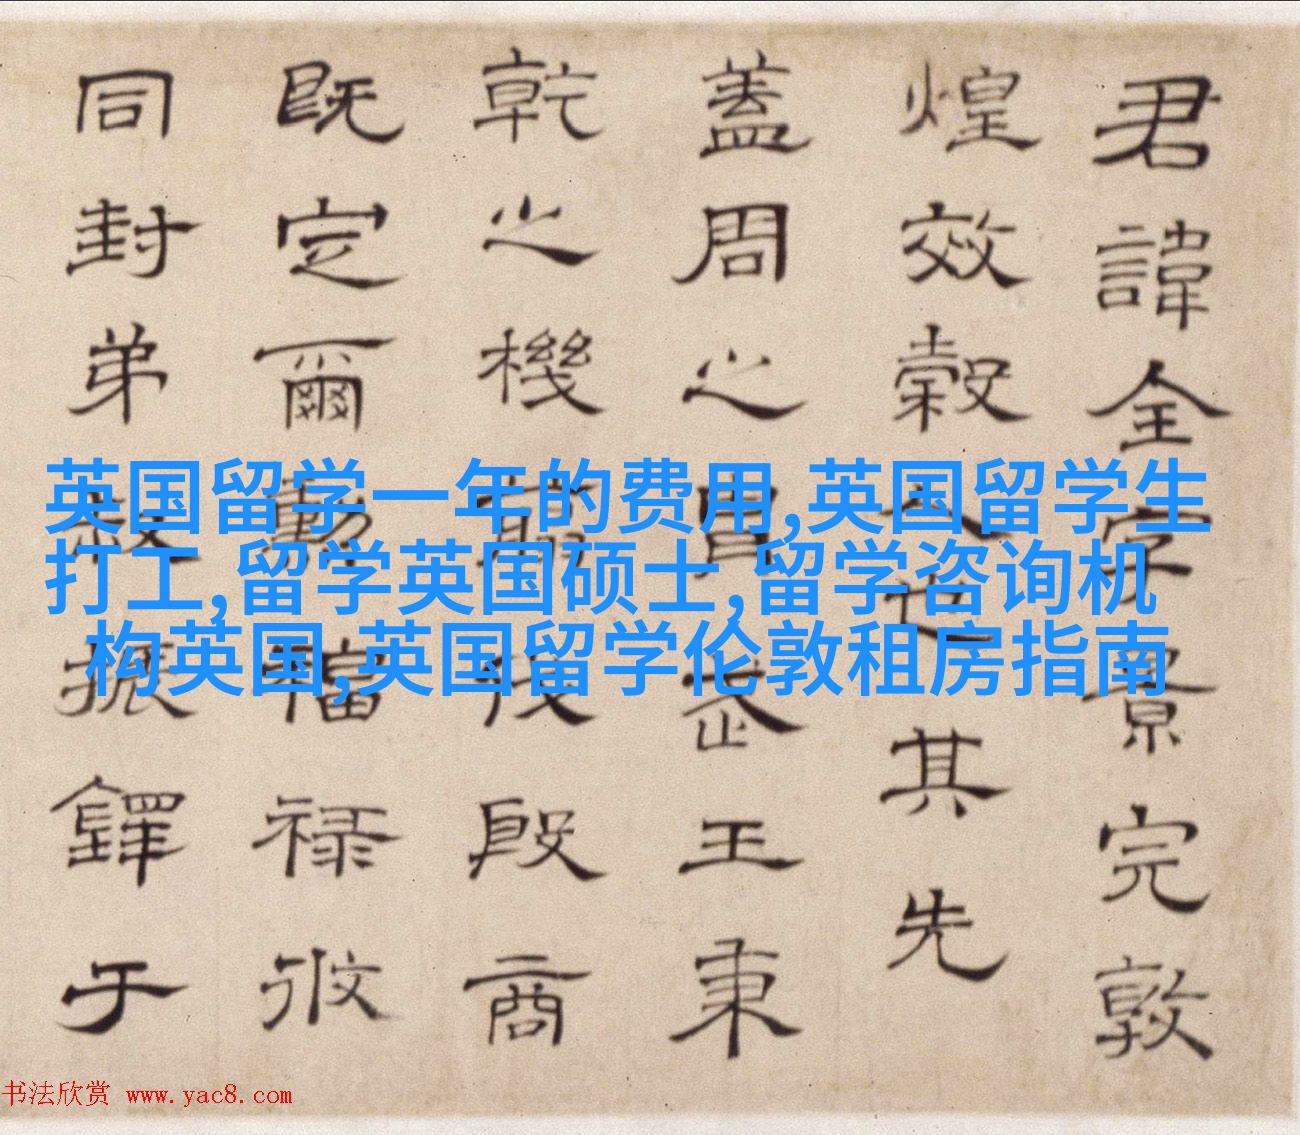 君諱全字景完敦
煌效穀人也其先
蓋周之胄武王秉
乾之機翦伐殷商
既定爾勳福祿攸
同封弟叔振鐸于
英国留学一年的费用,英国留学生
打工,留学英国硕士,留学咨询机
构英国,英国留学伦敦租房指南
书法欣赏 www.yac8.com